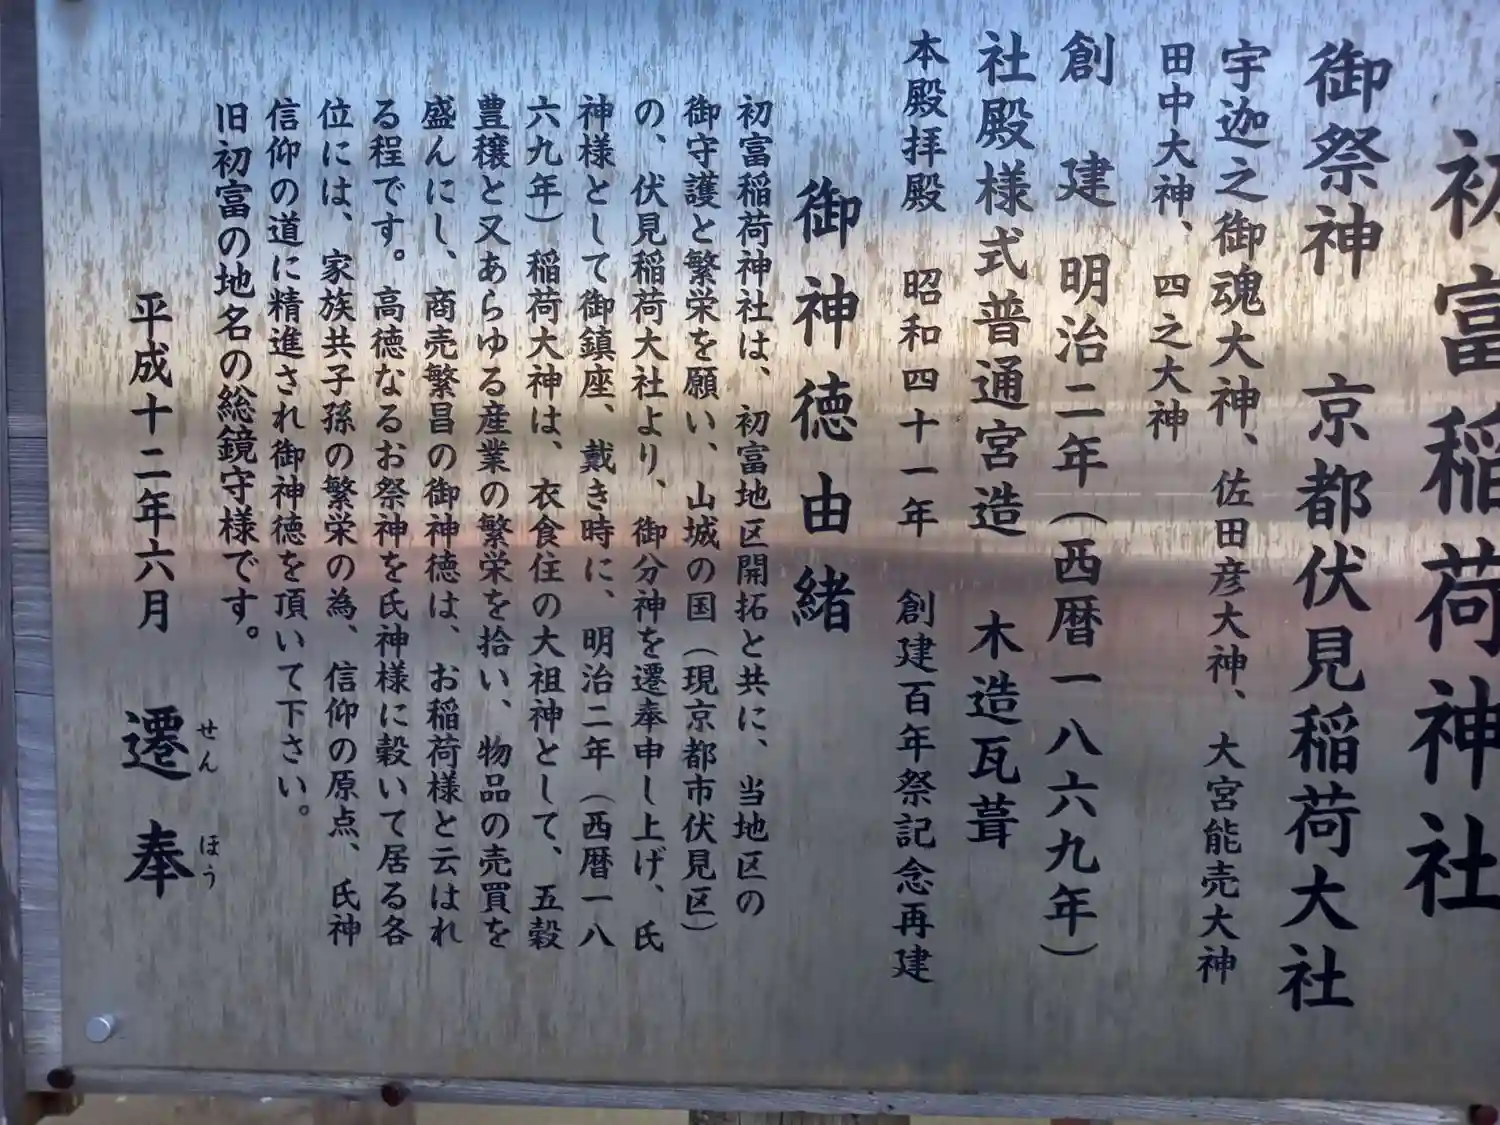 初富稲荷神社
御祭神　京都伏見稲荷大社
宇迦之御魂大神、佐田彦大神、大宮能売大神
田中大神、四之大神
創　建　明治二年（西暦一八六九年）
社殿様式普通宮造　木造瓦葺
本殿拝殿　昭和四十一年　創建百年祭記念再建
御神徳由緒
初富稲荷神社は、初富地区開拓と共に、当地区の
御守護と繁栄を願い、山城の国（現京都市伏見区）
の、伏見稲荷大社より、御分神を遷奉申し上げ、氏
神様として御鎮座、戴き時に、明治二年（西暦一八
六九年）稲荷大神は、衣食住の大祖神として、五穀
豊穣と又あらゆる産業の繁栄を拾い、物品の売買を
盛んにし、商売繁昌の御神徳は、お稲荷様と云はれ
る程です。高徳なるお祭神を氏神様に穀いて居る各
位には、家族共子孫の繁栄の為、信仰の原点、氏神
信仰の道に精進され御神徳を頂いて下さい。
旧初富の地名の総鏡守様です。
平成十二年六月　遷奉
せん　ほう